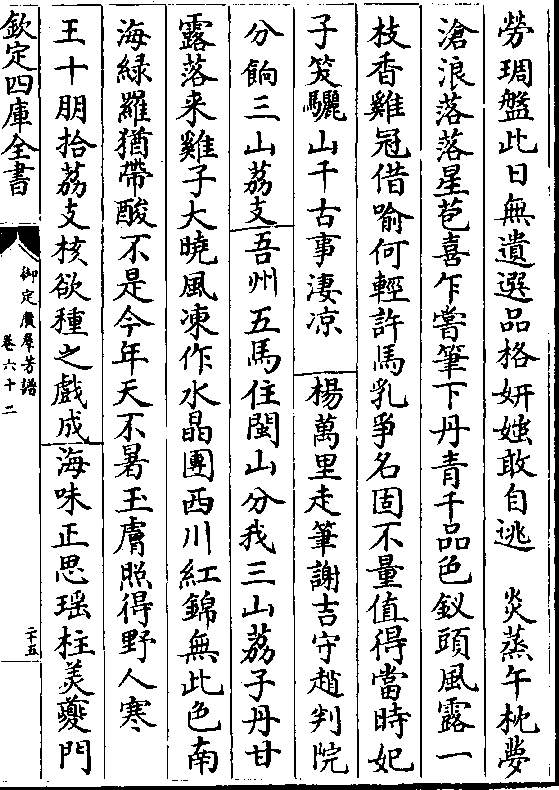 勞琱盤此日無遺選品格妍媸敢自逃　炎蒸午枕夢
滄浪落落星苞喜乍嘗筆下丹青千品色釵頭風露一
枝香雞冠借喻何輕許馬乳爭名固不量值得當時妃
子笑驪山千古事淒凉　楊萬里走筆謝吉守趙判院
分餉三山荔支吾州五馬住閩山分我三山荔子丹甘
露落來雞子大曉風凍作水晶團西川紅錦無此色南
海綠羅猶帶酸不是今年天不暑玉膚照得野人寒
王十朋拾荔支核欲種之戲成海味正思瑶柱美夔門
欽定四庫全書
御定廣羣芳譜
卷六十二
二十五